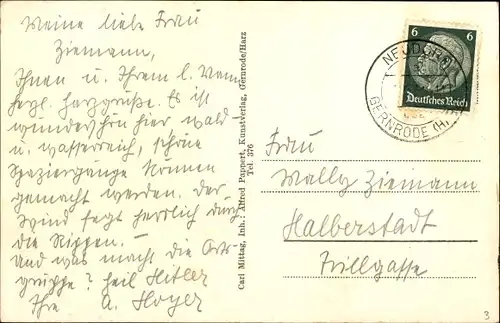 Meine liebe Frau
Ziemann,
Ihnen u. Ihrem l. Mann
herzl. Harzgrüße. Es ist
wunderschön hier wald-
u. wasserreich, schöne
Spaziergänge können
gemacht werden. Der
Wind fegt herrlich durch
die Rippen. -
Und was macht die Orts-
gruppe? Heil Hitler
Ihre A. Hoyer
Carl Mittag, Inh.: Alfred Pappert, Kunstverlag, Gernrode/Harz
Tel. 376
6 6
Deutsches Reich
NEUDORF
GERNRODE (H)
Frau
Wally Ziemann
Halberstadt
Trillgasse
3